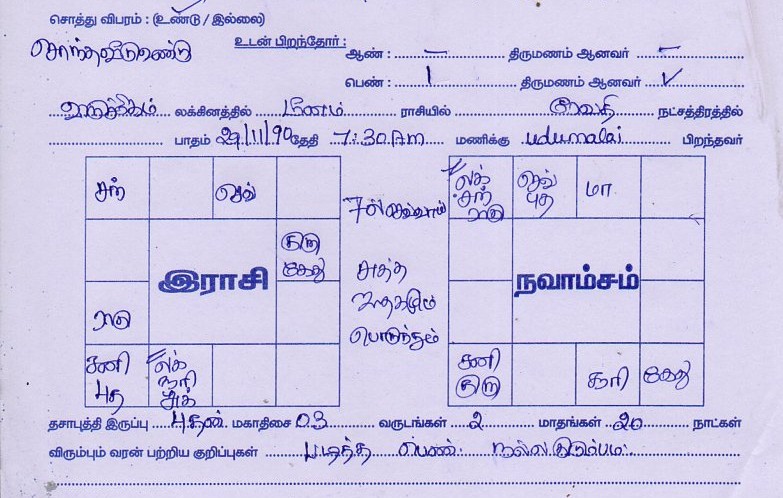 சொத்து விபரம் : (உண்டு / இல்லை)
சொந்தவீடு உண்டு உடன் பிறந்தோர் : ஆண் : – திருமணம் ஆனவர் –
பெண் : 1 திருமணம் ஆனவர் ✓
லக்கினத்தில் மீனம் ராசியில் ரேவதி நட்சத்திரத்தில்
பாதம் 29/11/90 தேதி 7:30 Am மணிக்கு udumalai பிறந்தவர்
சந் செவ் லக் சந் ராகு செவ் புத மா
7ல் செவ்வாய்
குரு கேது
இராசி சுத்த நவாம்சம்
ஜாதகமும்
ராகு பொருந்தும்
சனி புத லக் சூரி சுக் சனி குரு சூரி கேது
தசாபுத்தி இருப்பு புதன் மகாதிசை 03 வருடங்கள் 2 மாதங்கள் 20 நாட்கள்
விரும்பும் வரன் பற்றிய குறிப்புகள் படித்த பெண். நல்ல குடும்பம்